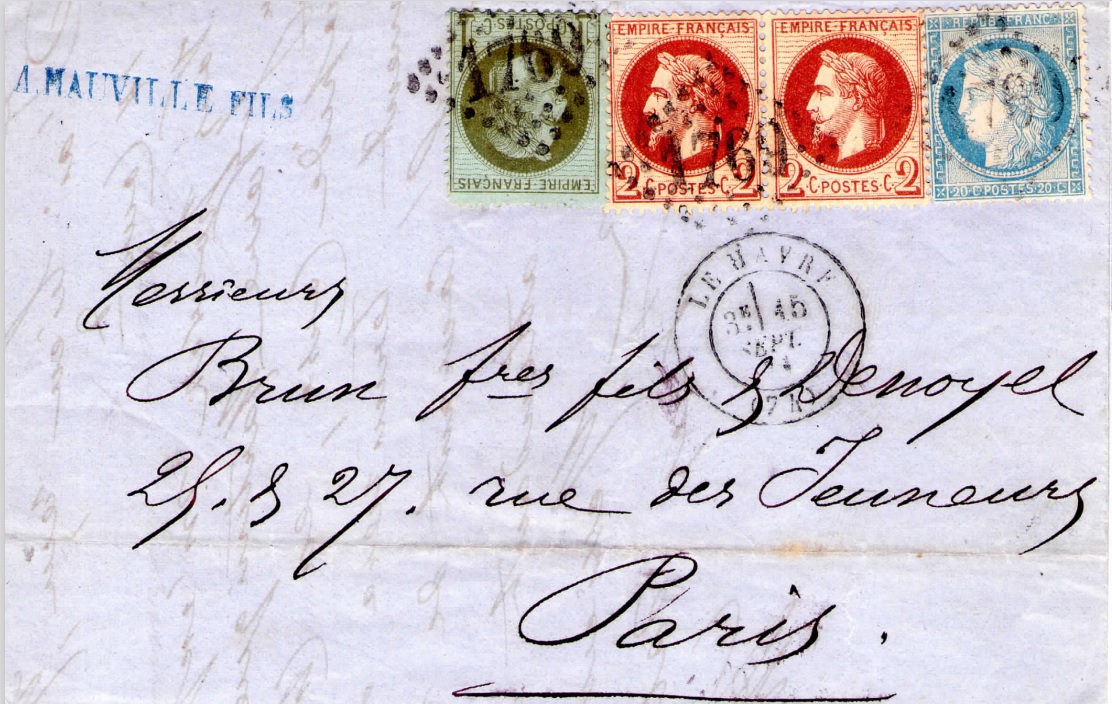 A. MAUVILLE FILS
1 C. POSTES C. 1
EMPIRE FRANÇAIS
1769
EMPIRE FRANÇAIS
2 C. POSTES C. 2
EMPIRE FRANÇAIS
2 C. POSTES C. 2
1769
REPUB. FRANC.
20 C. POSTES 20 C.
LE HAVRE
3E 15
SEPT.
71
Messieurs
Brun fres fils & Denoyel
25. & 27. rue des Jeuneurs
Paris.